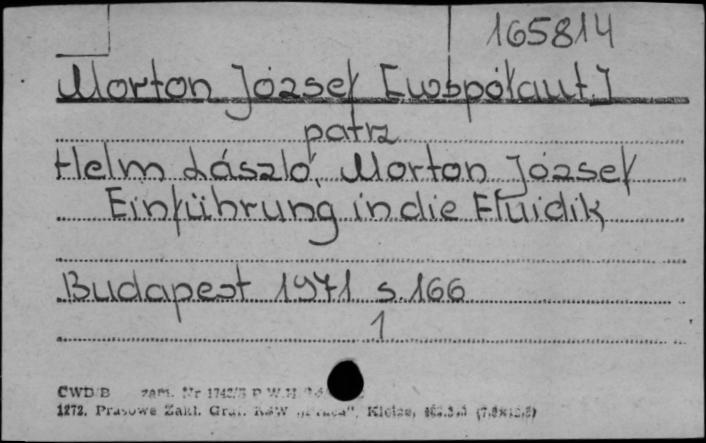 165814
Morton József [współaut.]
patrz
Helm László, Morton József
Einführung in die Fluidik
Budapest 1971 s. 166
1
CWD/B zam. Nr 1742/S P.W.H
1272. Prasowe Zakł. Graf. RSW „Prasa”, Kielce,